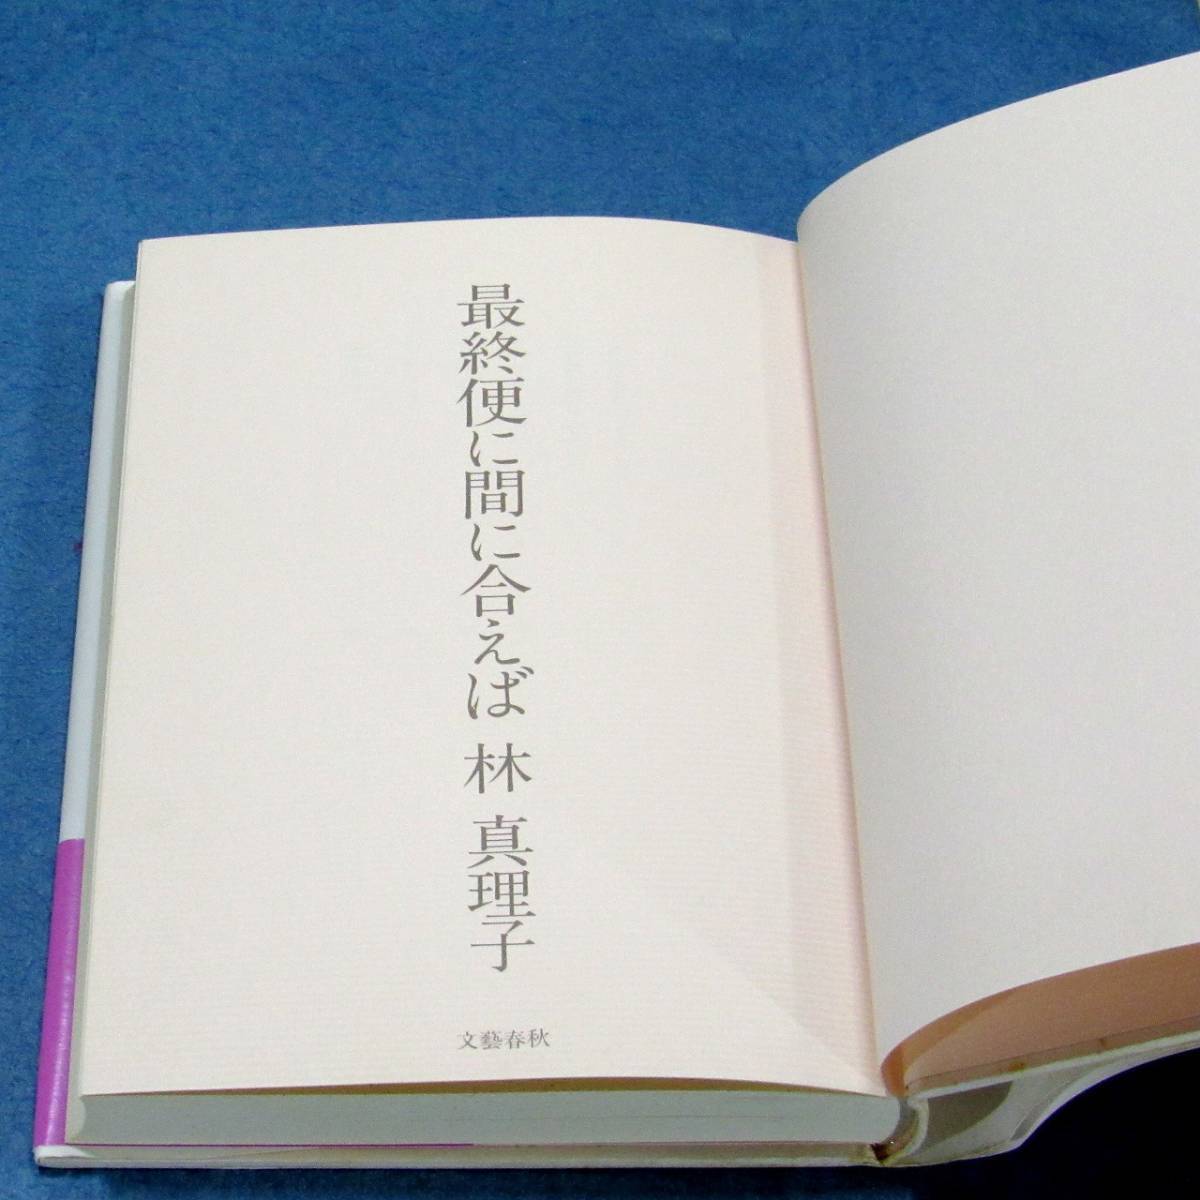 最終便に間に合えば 林 真理子
文藝春秋